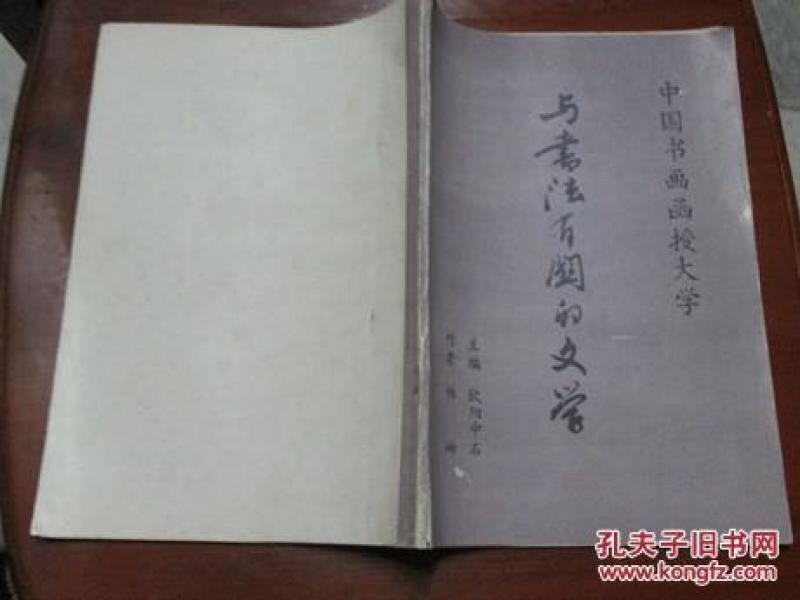 中国书画函授大学
与书法有関的文学
主编 欧阳中石
作者
孔夫子旧书网
www.kongfz.com